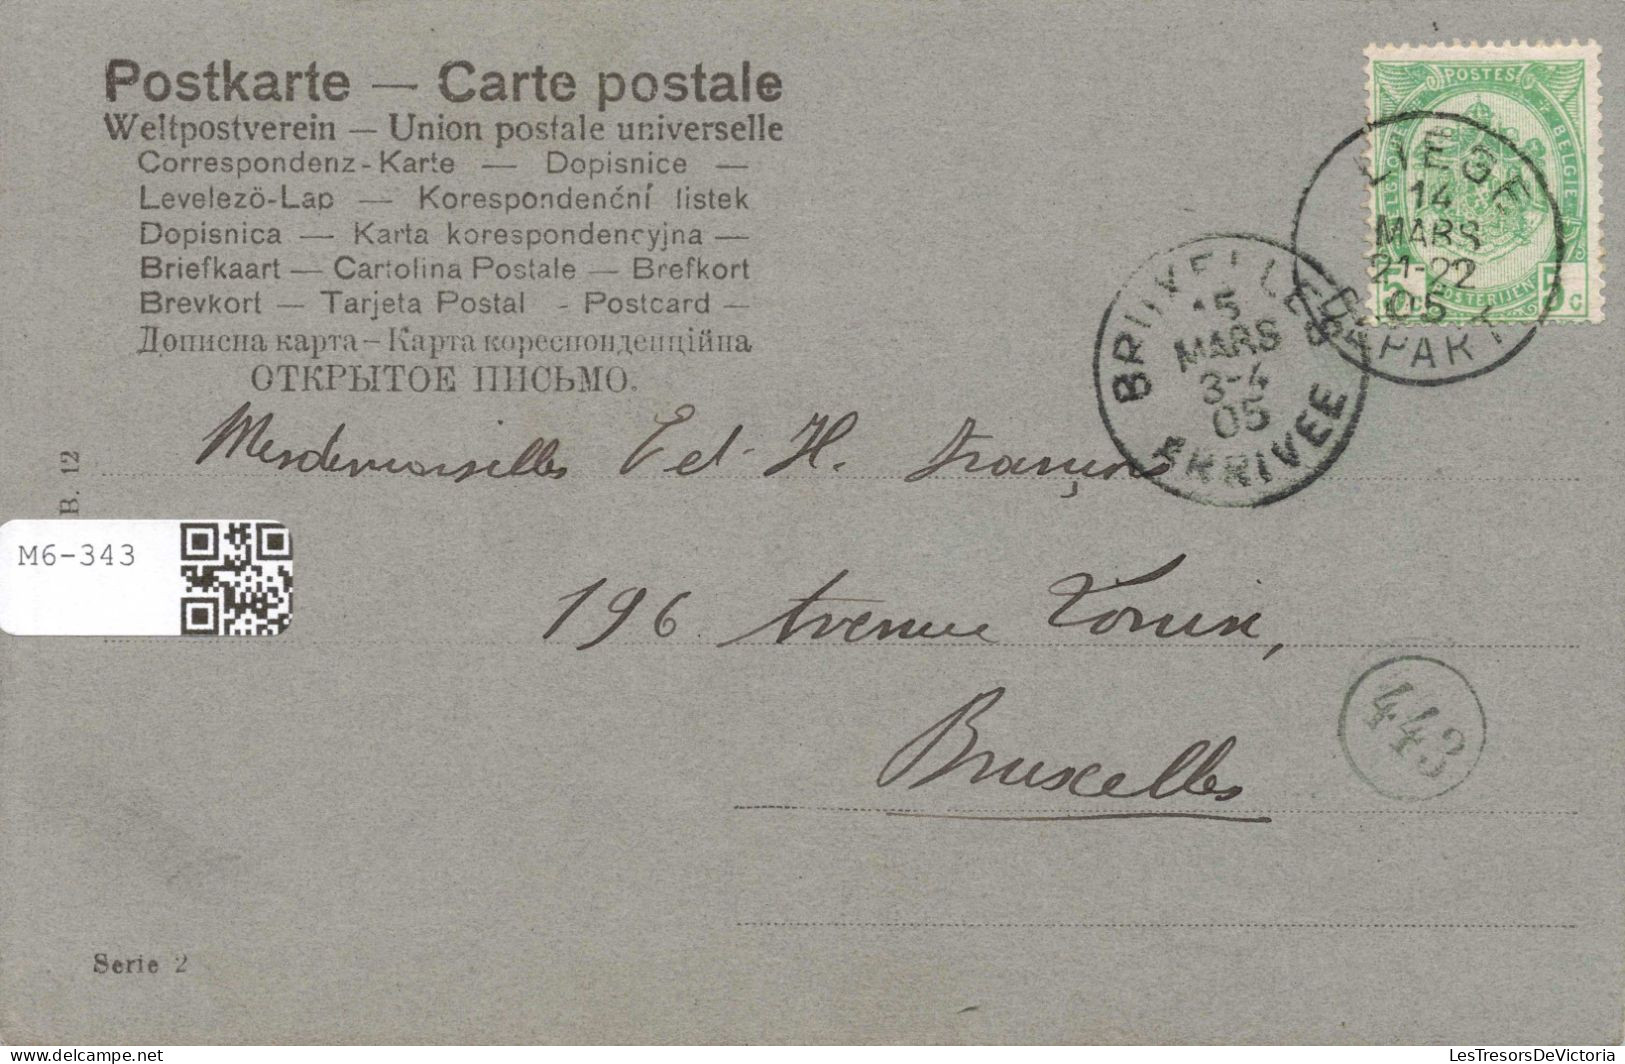 Postkarte — Carte postale
Weltpostverein — Union postale universelle
Correspondenz-Karte — Dopisnice —
Levelezö-Lap — Korespondenční listek
Dopisnica — Karta korespondencyjna —
Briefkaart — Cartolina Postale — Brefkort
Brevkort — Tarjeta Postal - Postcard —
Дописна карта — Карта кореспонденційна
ОТКРЫТОЕ ПИСЬМО.
POSTES
BELGIQUE
BELGIE
POSTERIJEN
5c 5c
LIEGE
14
MARS
21-22
05
DEPART
BRUXELLES
15
MARS
3-4
05
ARRIVEE
Mesdemoiselles E et H. François
196 Avenue Louise,
Bruxelles
443
B. 12
M6-343
Serie 2
delcampe.net
LesTresorsDeVictoria